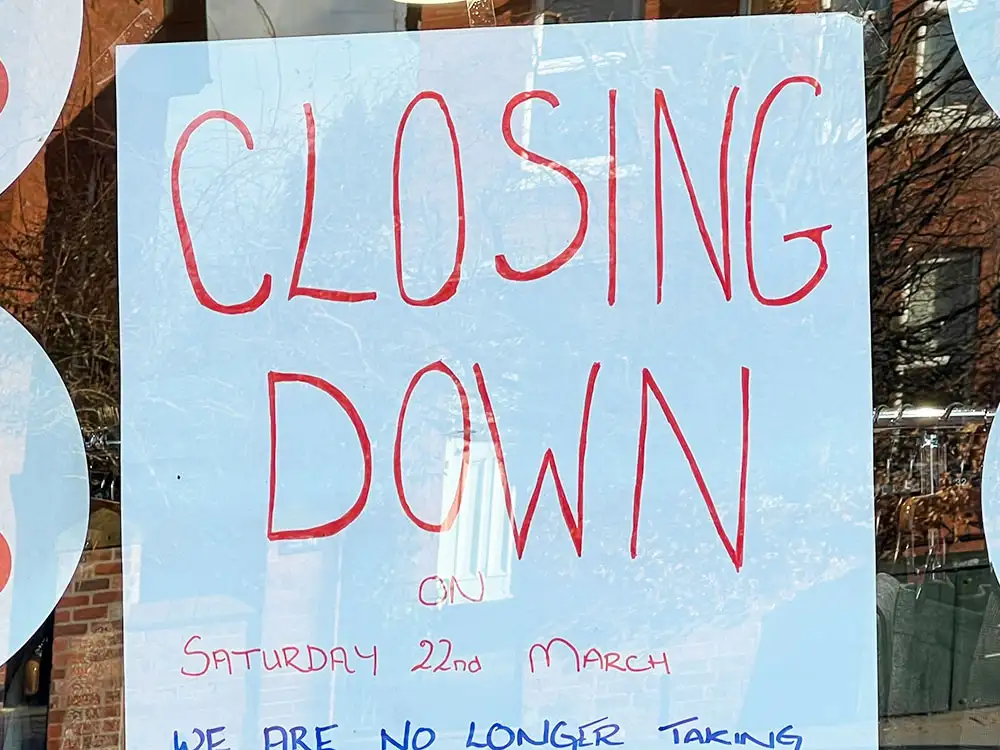 CLOSING
DOWN
ON
SATURDAY 22nd MARCH
WE ARE NO LONGER TAKING